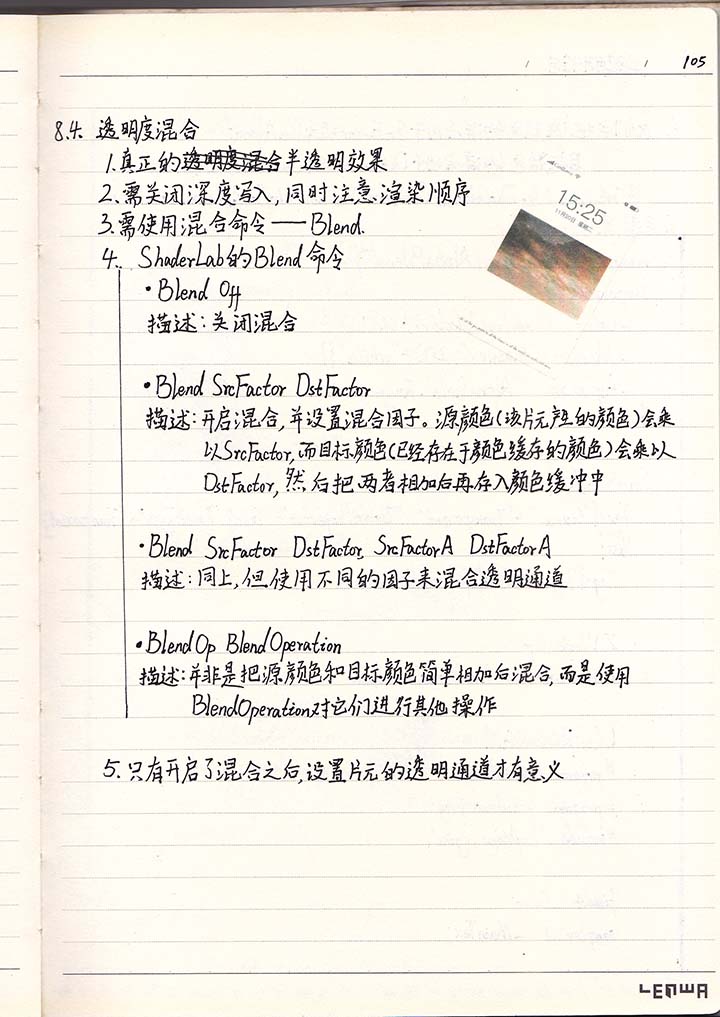 105
8.4. 透明度混合
1.真正的透明度混合半透明效果
2.需关闭深度写入,同时注意渲染顺序
3.需使用混合命令——Blend.
15:25
4. ShaderLab的Blend命令
•Blend Off
描述:关闭混合
•Blend SrcFactor DstFactor
描述:开启混合,并设置混合因子。源颜色(该片元产生的颜色)会乘
以SrcFactor,而目标颜色(已经存在于颜色缓存的颜色)会乘以
DstFactor,然后把两者相加后再存入颜色缓冲中
•Blend SrcFactor DstFactor, SrcFactorA DstFactorA
描述:同上,但使用不同的因子来混合透明通道
•BlendOp BlendOperation
描述:并非是把源颜色和目标颜色简单相加后混合,而是使用
BlendOperation对它们进行其他操作
5.只有开启了混合之后,设置片元的透明通道才有意义
LENWA